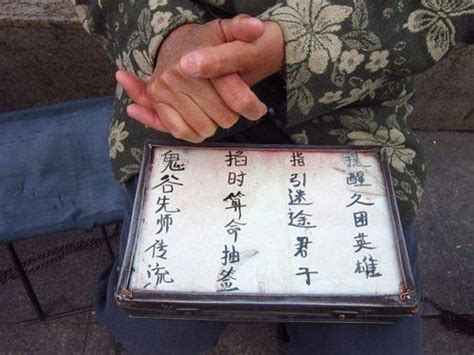 提醒久困英雄
指引迷途君子
掐时算命抽签
鬼谷先师传流